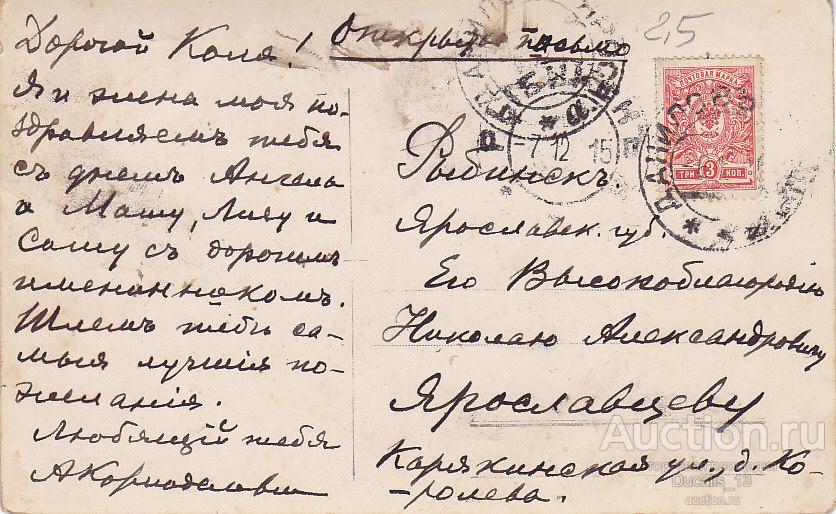 Открытое письмо
25
Дорогой Коля!
Я и жена моя по-
здравляемъ тебя
съ днемъ Ангела
а Машу, Лизу и
Сашу съ дорогимъ
именинникомъ.
Шлемъ тебѣ са-
мыя лучшія по-
желанія.
Любящій тебя
7 12 15
ПОЧТОВАЯ МАРКА
ТРИ 3 КОП.
Рыбинскъ.
Ярославск. губ.
Его Высокоблагородію
Николаю Александровичу
Ярославцеву
Карякинская ул., д. Ко-
ролева.
Auction.ru
Ducalis_13
auction.ru